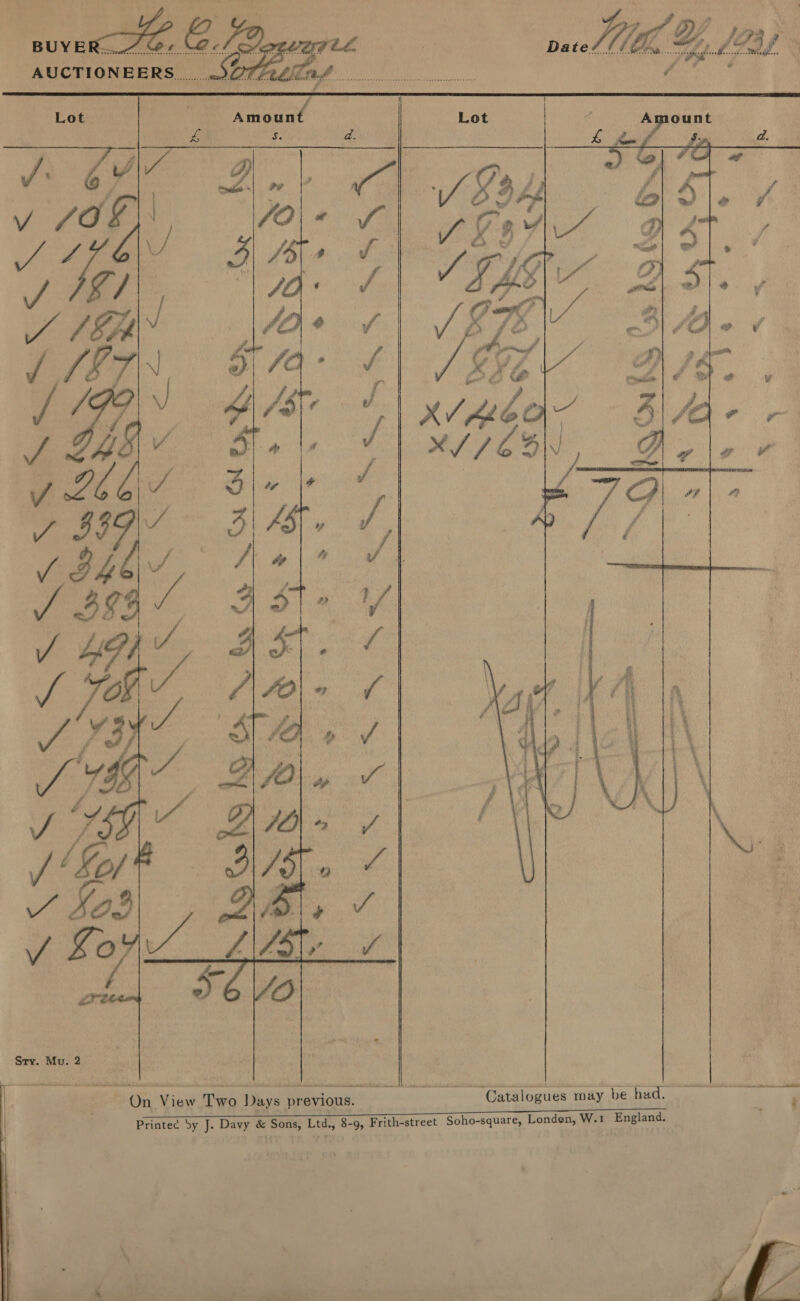 BUYER H. C. 
AUCTIONEERS Sotheby's
Date
Lot Amount
£ s. d.
108 10 -
176 3 15 -
181 10 -
184 10 -
187 5 10 -
190 4 15 -
248 5 - -
266 3 - -
339 3 15 -
346 1 - -
393 3 5 -
491 3 5 -
708 1 10 -
734 5 10 -
2 10 -
759 2 10 -
801 3 15 -
803 2 15 -
807 1 15 -
56 10
Lot Amount
£ s. d.
56 10 -
834 6 5 -
837 2 5 -
848 2 5 -
878 3 10 -
886 2 15 -
X 460 3 10 -
X 1163 2 - -
£79 " "
Sty. Mu. 2
On View Two Days previous. Catalogues may be had.
Printed by J. Davy & Sons, Ltd., 8-9, Frith-street Soho-square, London, W.1 England.